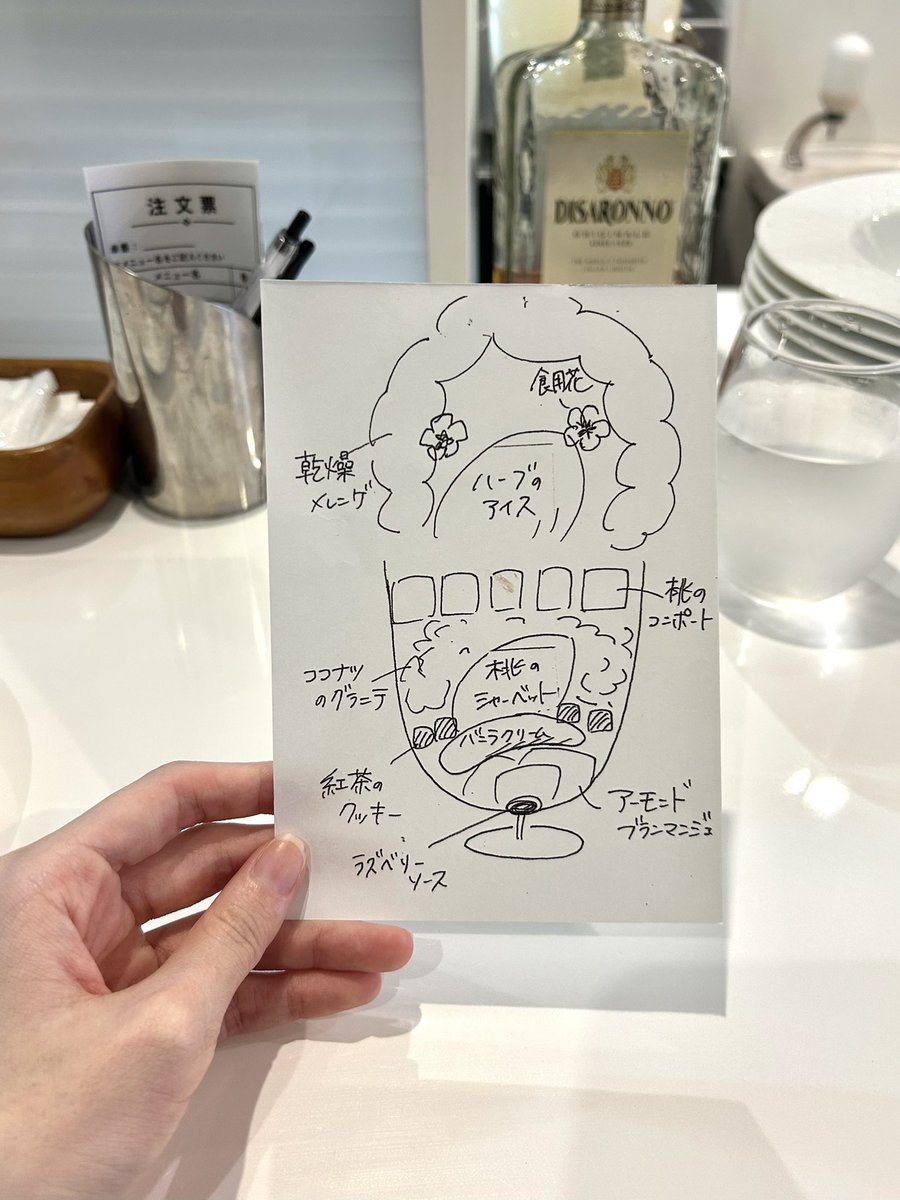 注文票
メニュー名
DISARONNO
食用花
乾燥
メレンゲ
ハーブの
アイス
桃の
コンポート
ココナツ
のグラニテ
桃の
シャーベット
バニラクリーム
紅茶の
クッキー
アーモンド
ブランマンジェ
ラズベリー
ソース